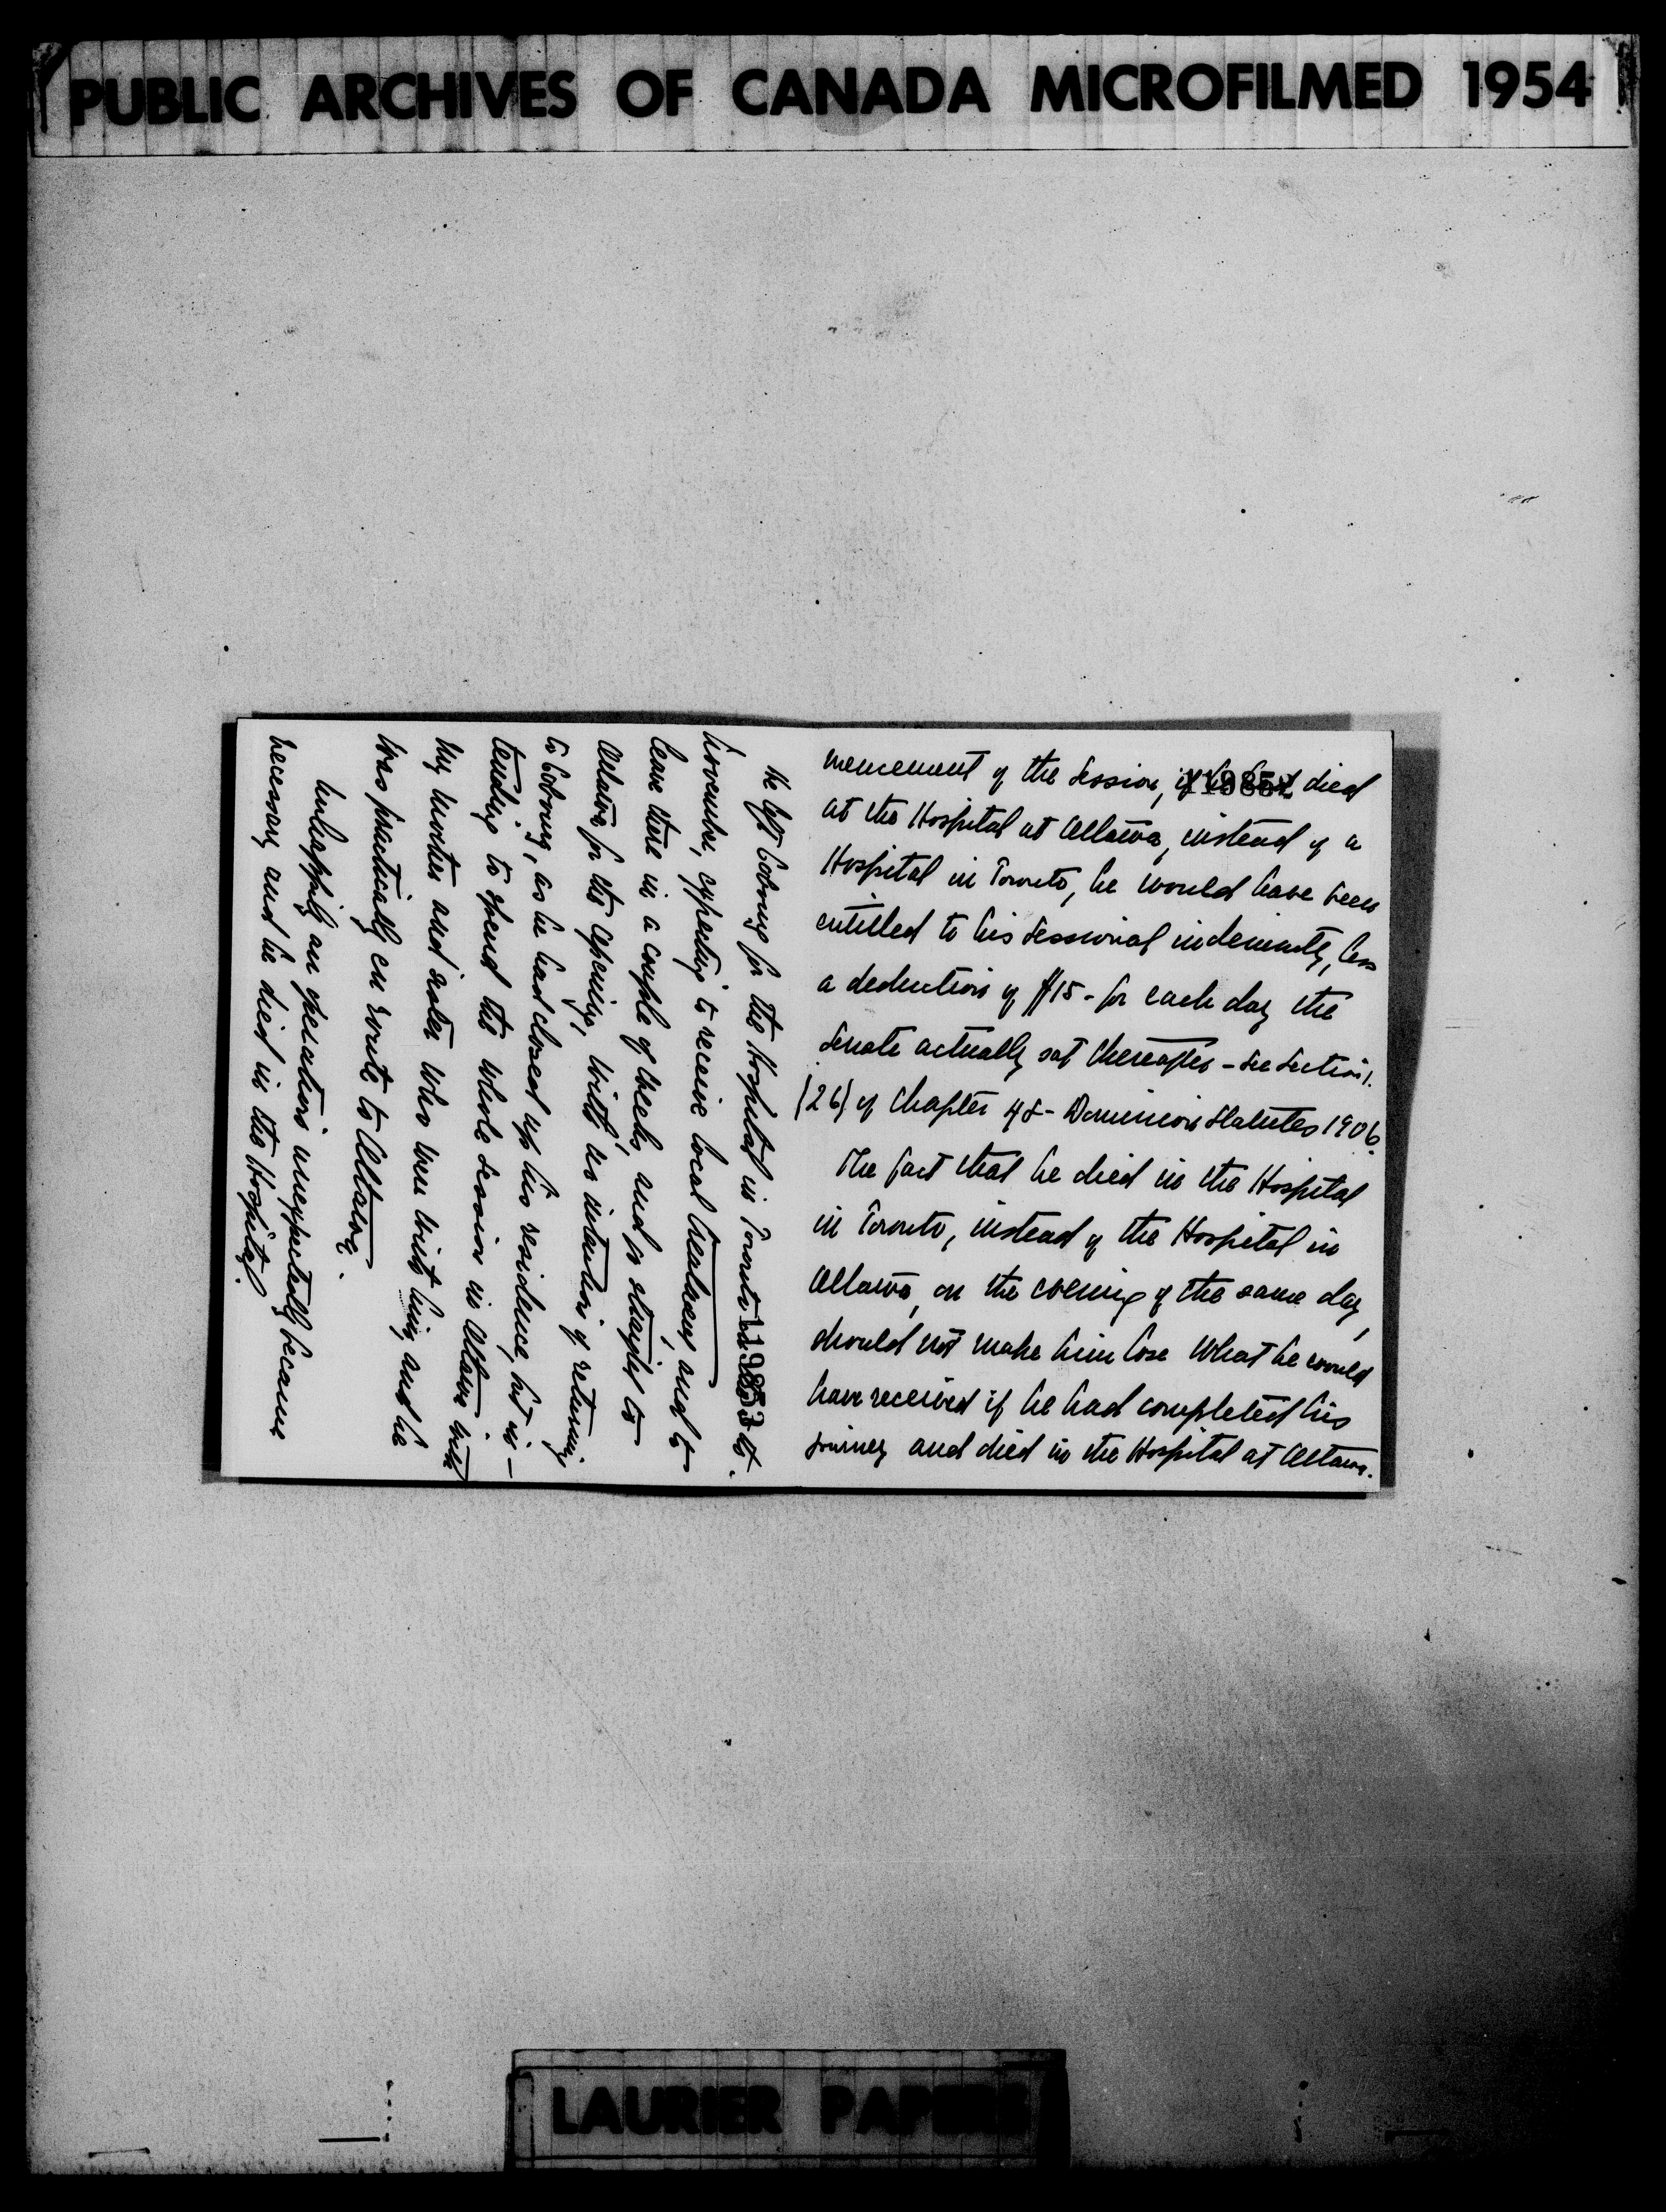 PUBLIC ARCHIVES OF CANADA MICROFILMED 1954
mencement of the Session, if he had died
119852
at the Hospital at Ottawa, instead of a
Hospital in Toronto, he would have been
entitled to his sessional indemnity, less
a deduction of $15- for each day the
Senate actually sat thereafter - See Section
(26) of Chapter 48- Dominion Statutes 1906.
The fact that he died in the Hospital
in Toronto, instead of the Hospital in
Ottawa, on the evening of the same day,
should not make him lose what he would
have received if he had completed his
journey and died in the Hospital at Ottawa.
119853
He left Cobourg for the Hospital in Toronto
November, expecting to receive local treatment, and to
leave there in a couple of weeks, and go straight to
Ottawa for the opening, with no intention of returning
to Cobourg, as he had closed up his residence, but in-
tending to spend the whole session in Ottawa with
my mother and sister who were with him, and he
was practically en route to Ottawa.
Unhappily an operation unexpectedly became
necessary and he died in the Hospital.
LAURIER PAPERS